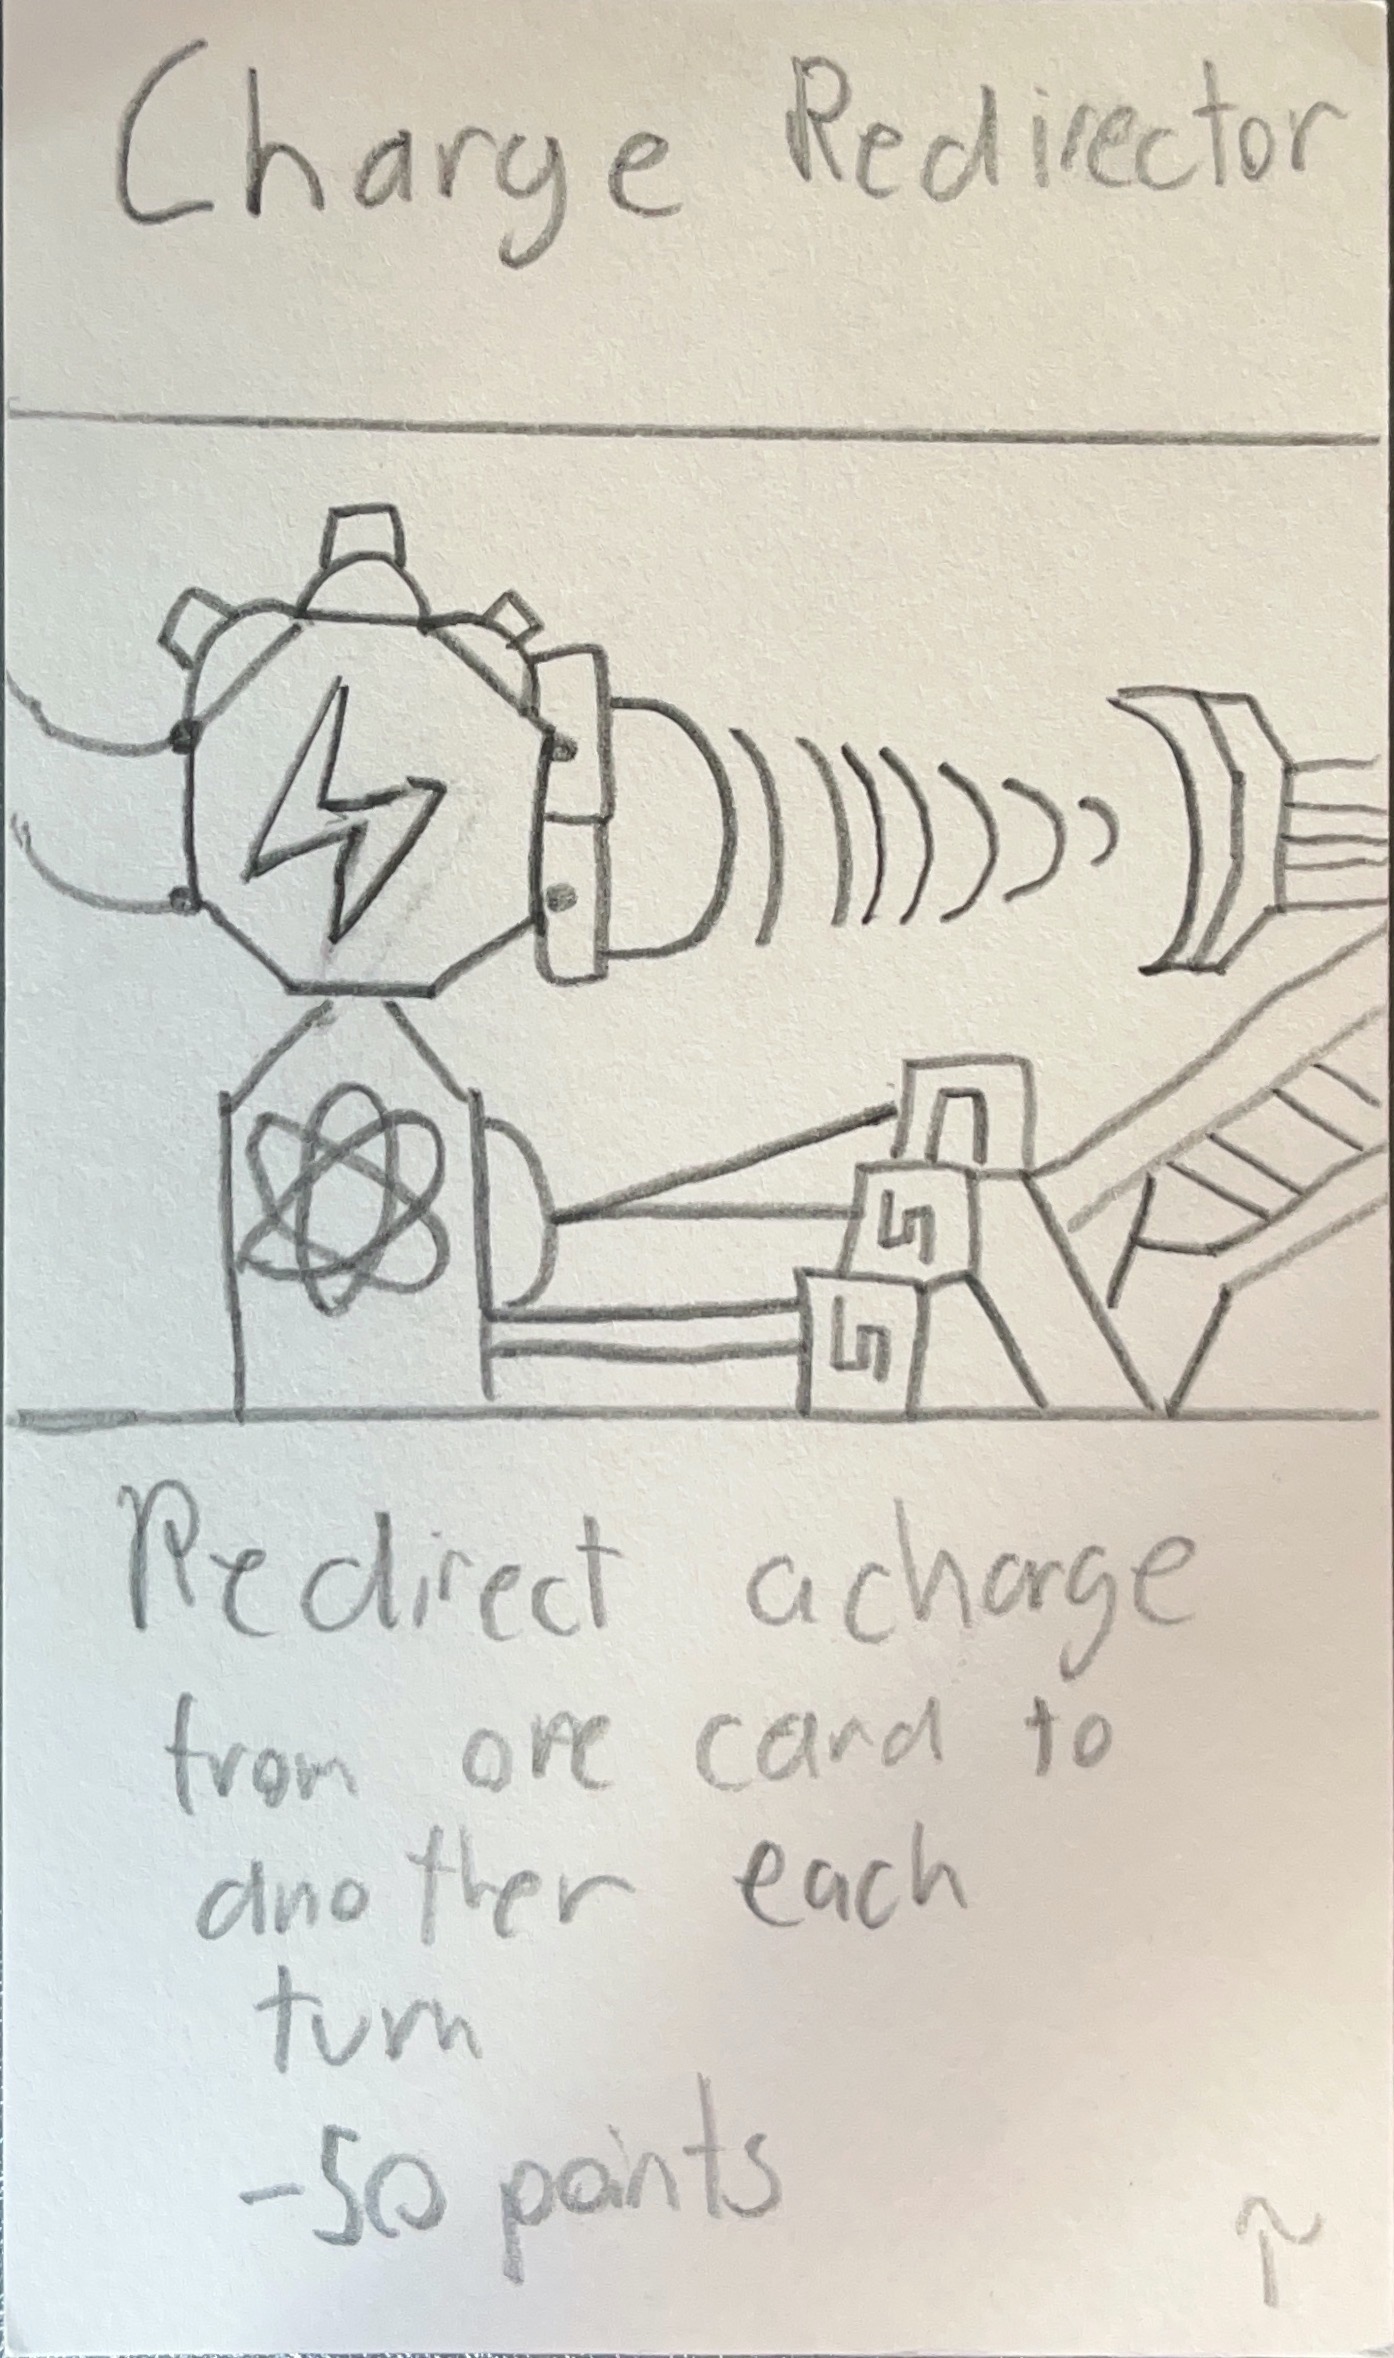 Charge Redirector
Redirect a charge
from one card to
another each
turn
-50 points